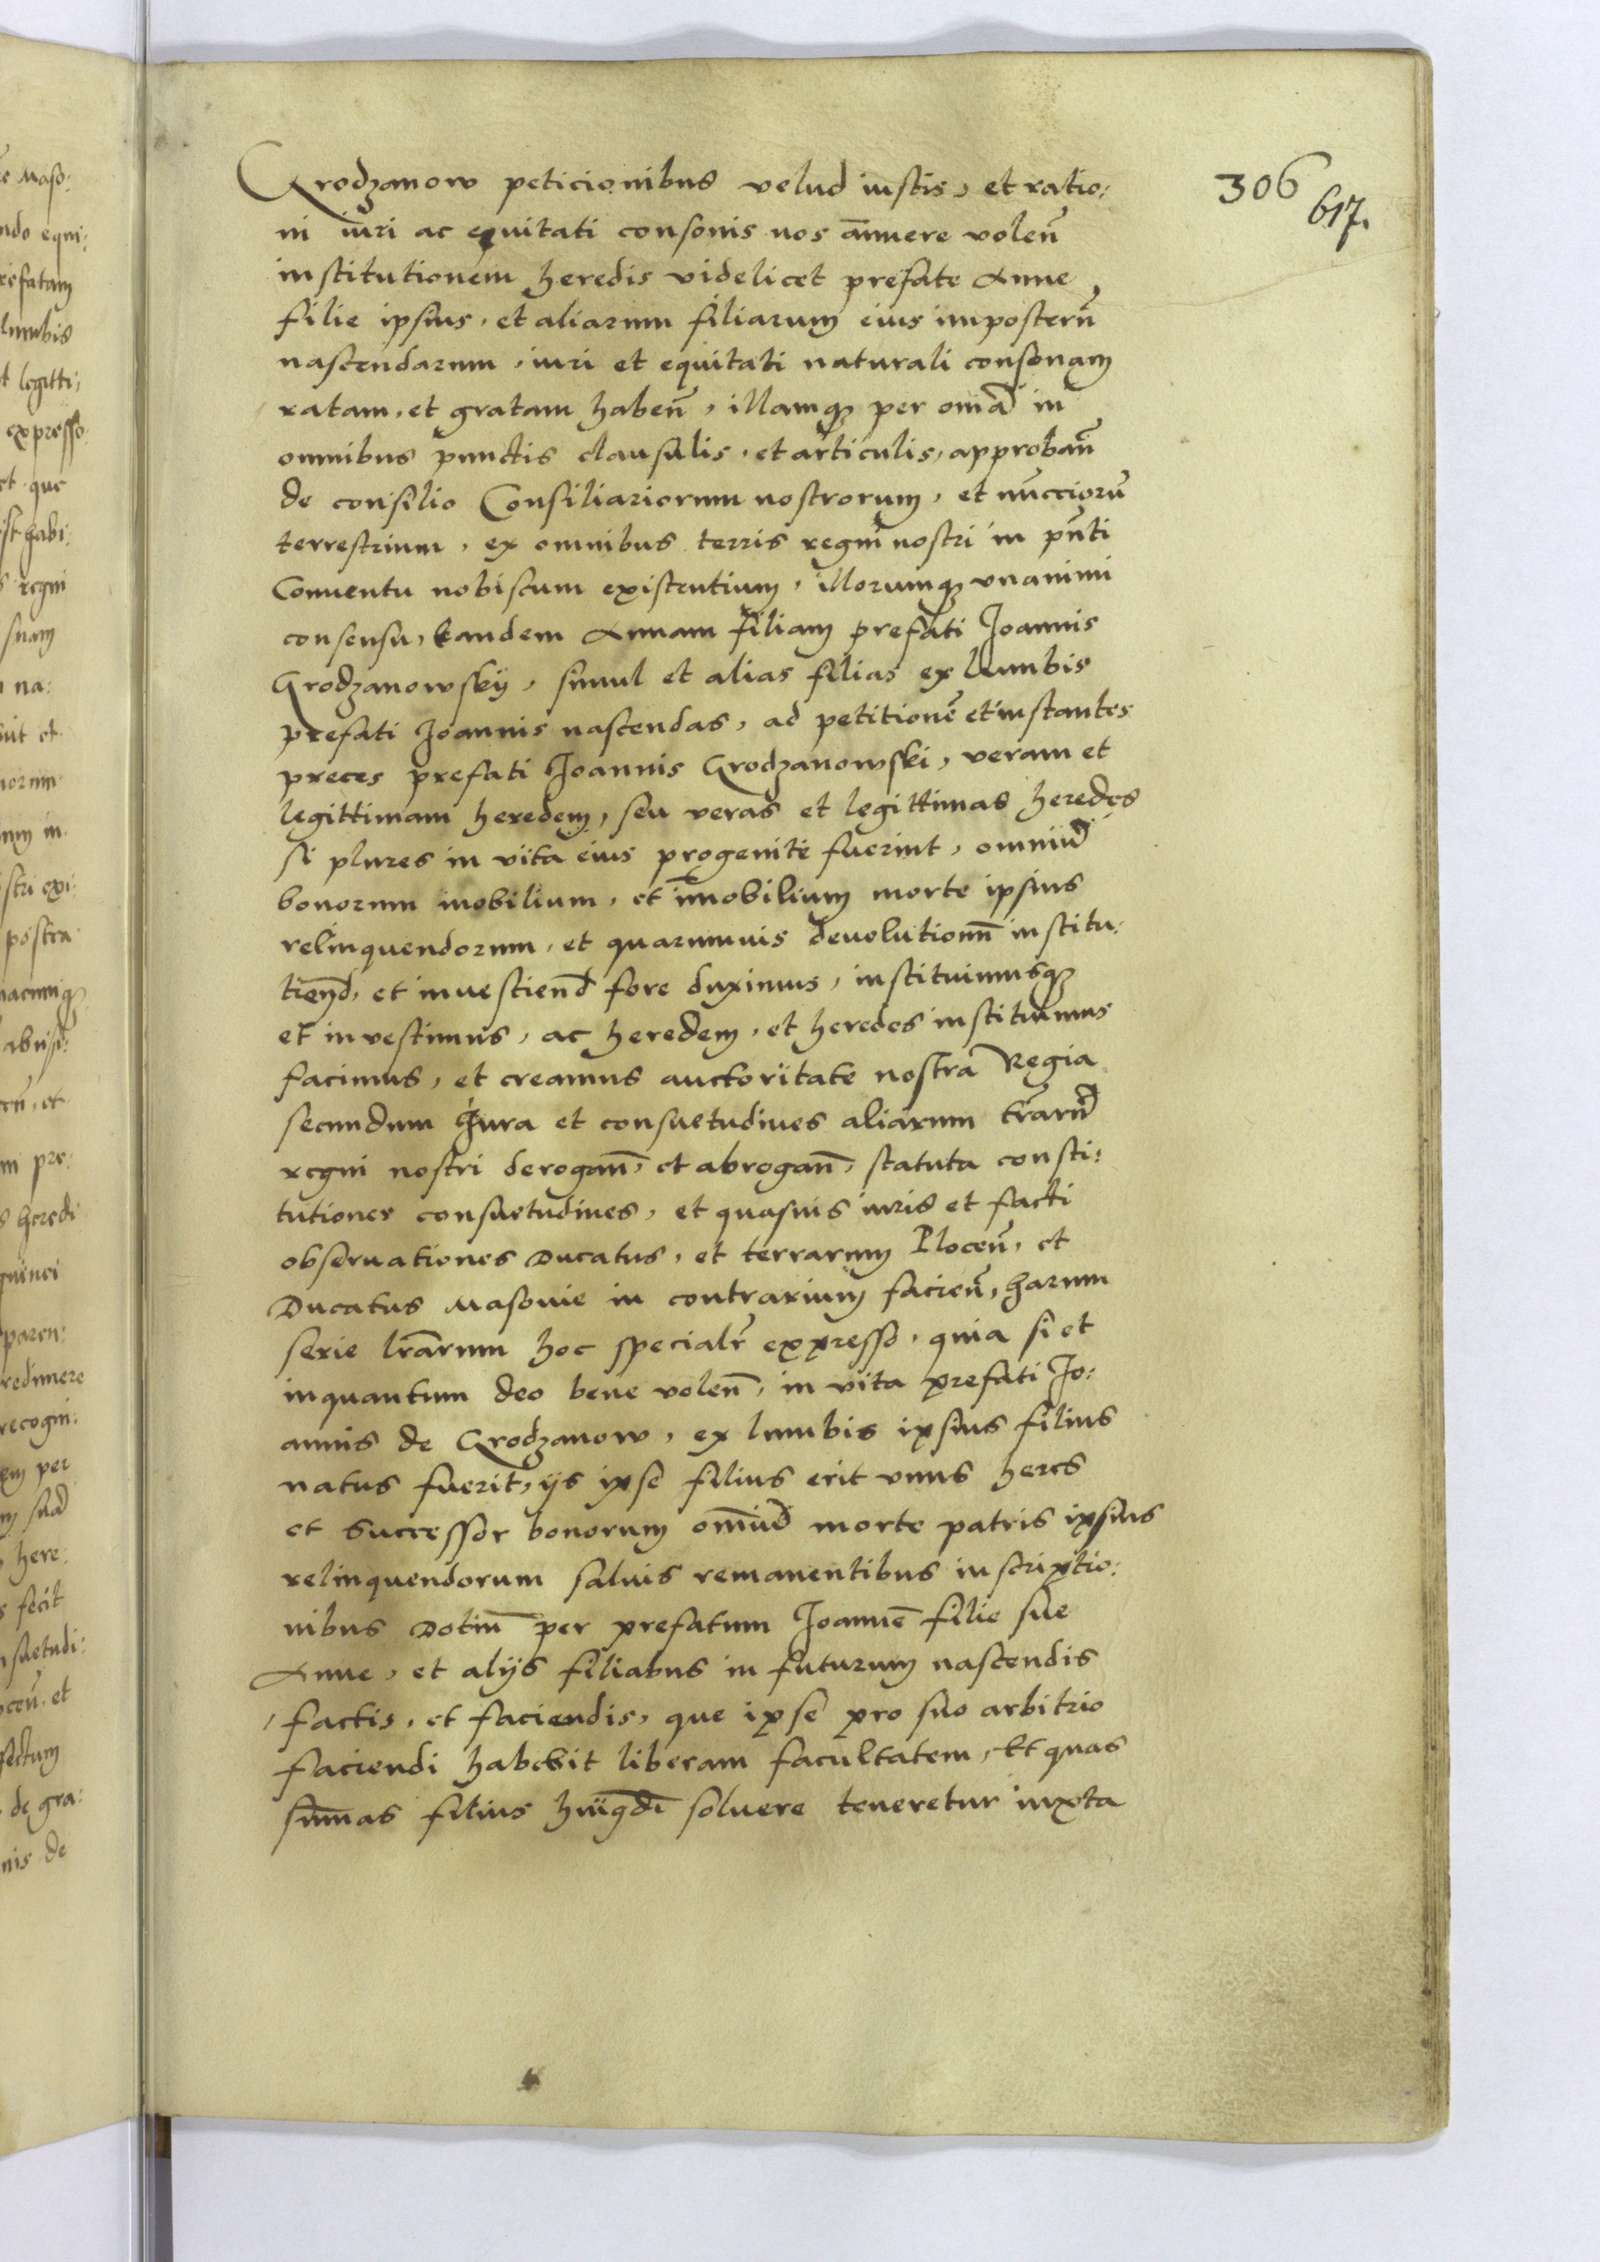 306
617.
Grodzanow peticionibus velud iustis, et ratio:
ni iuri ac equitati consonis nos an̄uere volen̄
institutionem heredis videlicet prefate Anne,
filie ipsius, et aliarum filiarum eius imposterū
nascendarum, iuri et equitati naturali consonam
ratam, et gratam haben̄, illamqꝫ per om̄ia in
omnibus punctis clausulis, et articulis, approban̄
de consilio Consiliariorum nostrorum, et nuncciorū
terrestrium, ex omnibus terris regni nostri in pn̄ti
Conuentu nobiscum existentium, illorumqꝫ vnanimi
consensu, eandem Annam filiam prefati Joannis
Grodzanowskÿ, simul et alias filias ex lumbis
prefati Joannis nascendas, ad petitionē et instantes
preces prefati Joannis Grodzanowski, veram et
legittimam heredem, seu veras et legittimas heredes
si plures in vita eius progenite fuerint, omniū
bonorum mobilium, et im̄obilium morte ipsius
relinquendorum, et quarumuis deuolutionū institu:
tiend, et inuestiend fore duximus, instituimusqꝫ
et investimus, ac heredem, et heredes instituimus
facimus, et creamus auctoritate nostra Regia
secundum Jura et consuetudines aliarum tr̄arū
regni nostri derogan̄, et abrogan̄, statuta consti:
tutiones consuetudines, et quasuis iuris et facti
obseruationes Ducatus, et terrarum Plocen̄, et
Ducatus Masouie in contrarium facien̄, harum
serie lr̄arum hoc specialr̄ expresso, quia si et
inquantum deo bene volen̄, in vita prefati Jo:
annis de Grodzanow, ex lumbis ipsius filius
natus fuerit, ijs ipse filius erit vnus heres
et successor bonorum om̄iū morte patris ipsius
relinquendorum saluis remanentibus inscriptio:
nibus Dotiū per prefatum Joannē filie sue
Anne, et alijs filiabus in futurum nascendis
factis, et faciendis, que ipse pro suo arbitrio
faciendi habebit liberam facultatem, Et quas
sum̄as filius hmōi soluere teneretur iuxta